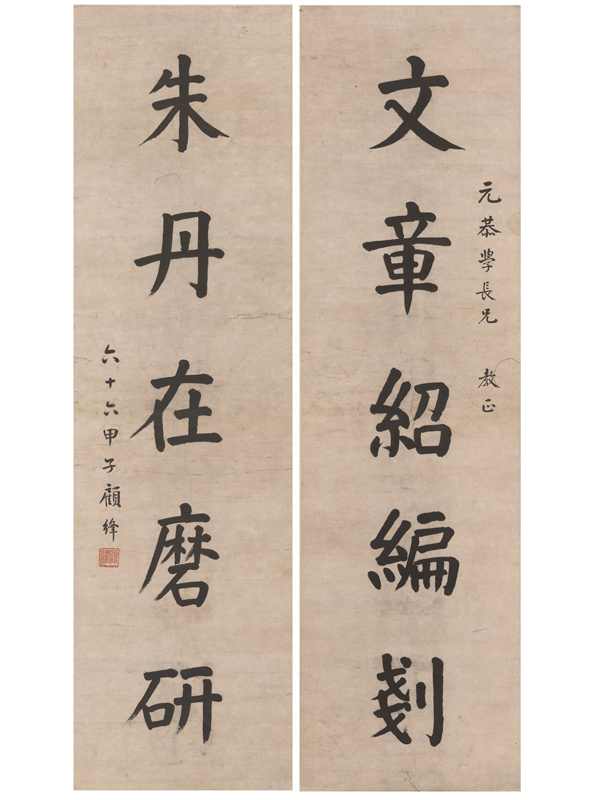 元恭學長兄 教正
文章紹編剗
朱丹在磨研
六十六甲子顧絳